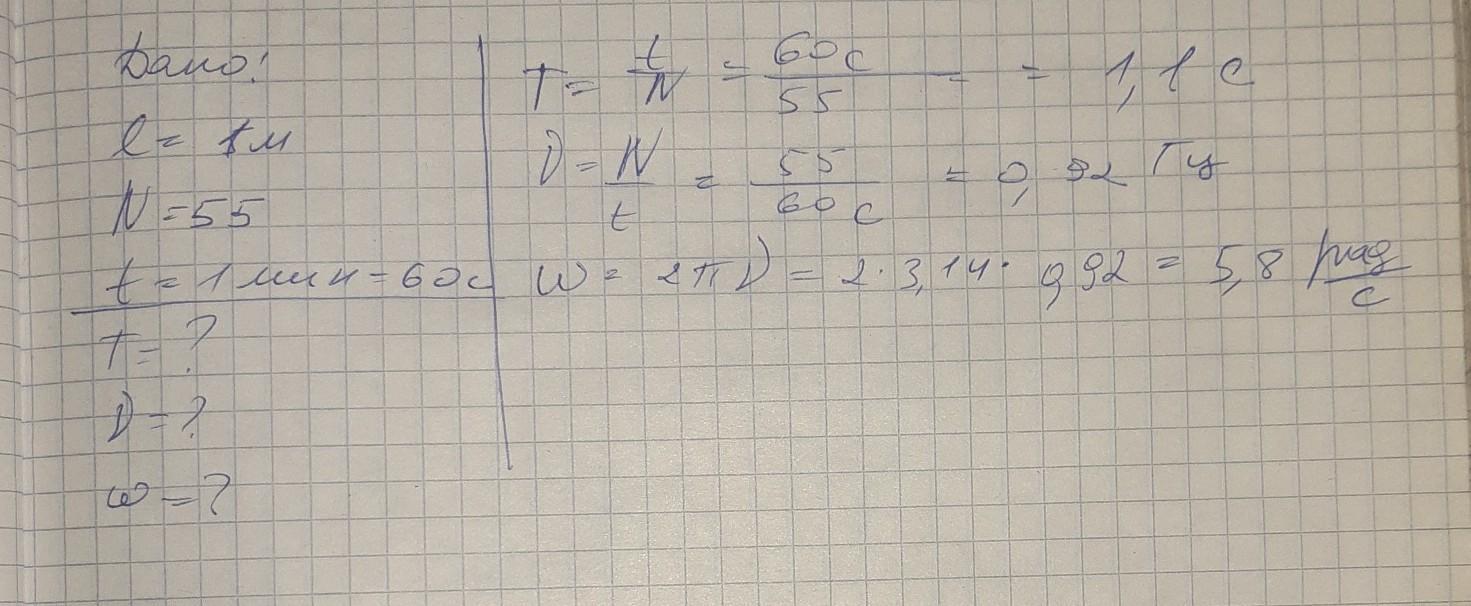 Дано:
l = 1м
N = 55
t = 1 мин = 60с
T = ?
ν = ?
ω = ?
T = t/N = 60с/55 = = 1,1 с
ν = N/t = 55/60с = 0,92 Гц
ω = 2πν = 2·3,14·0,92 = 5,8 рад/с